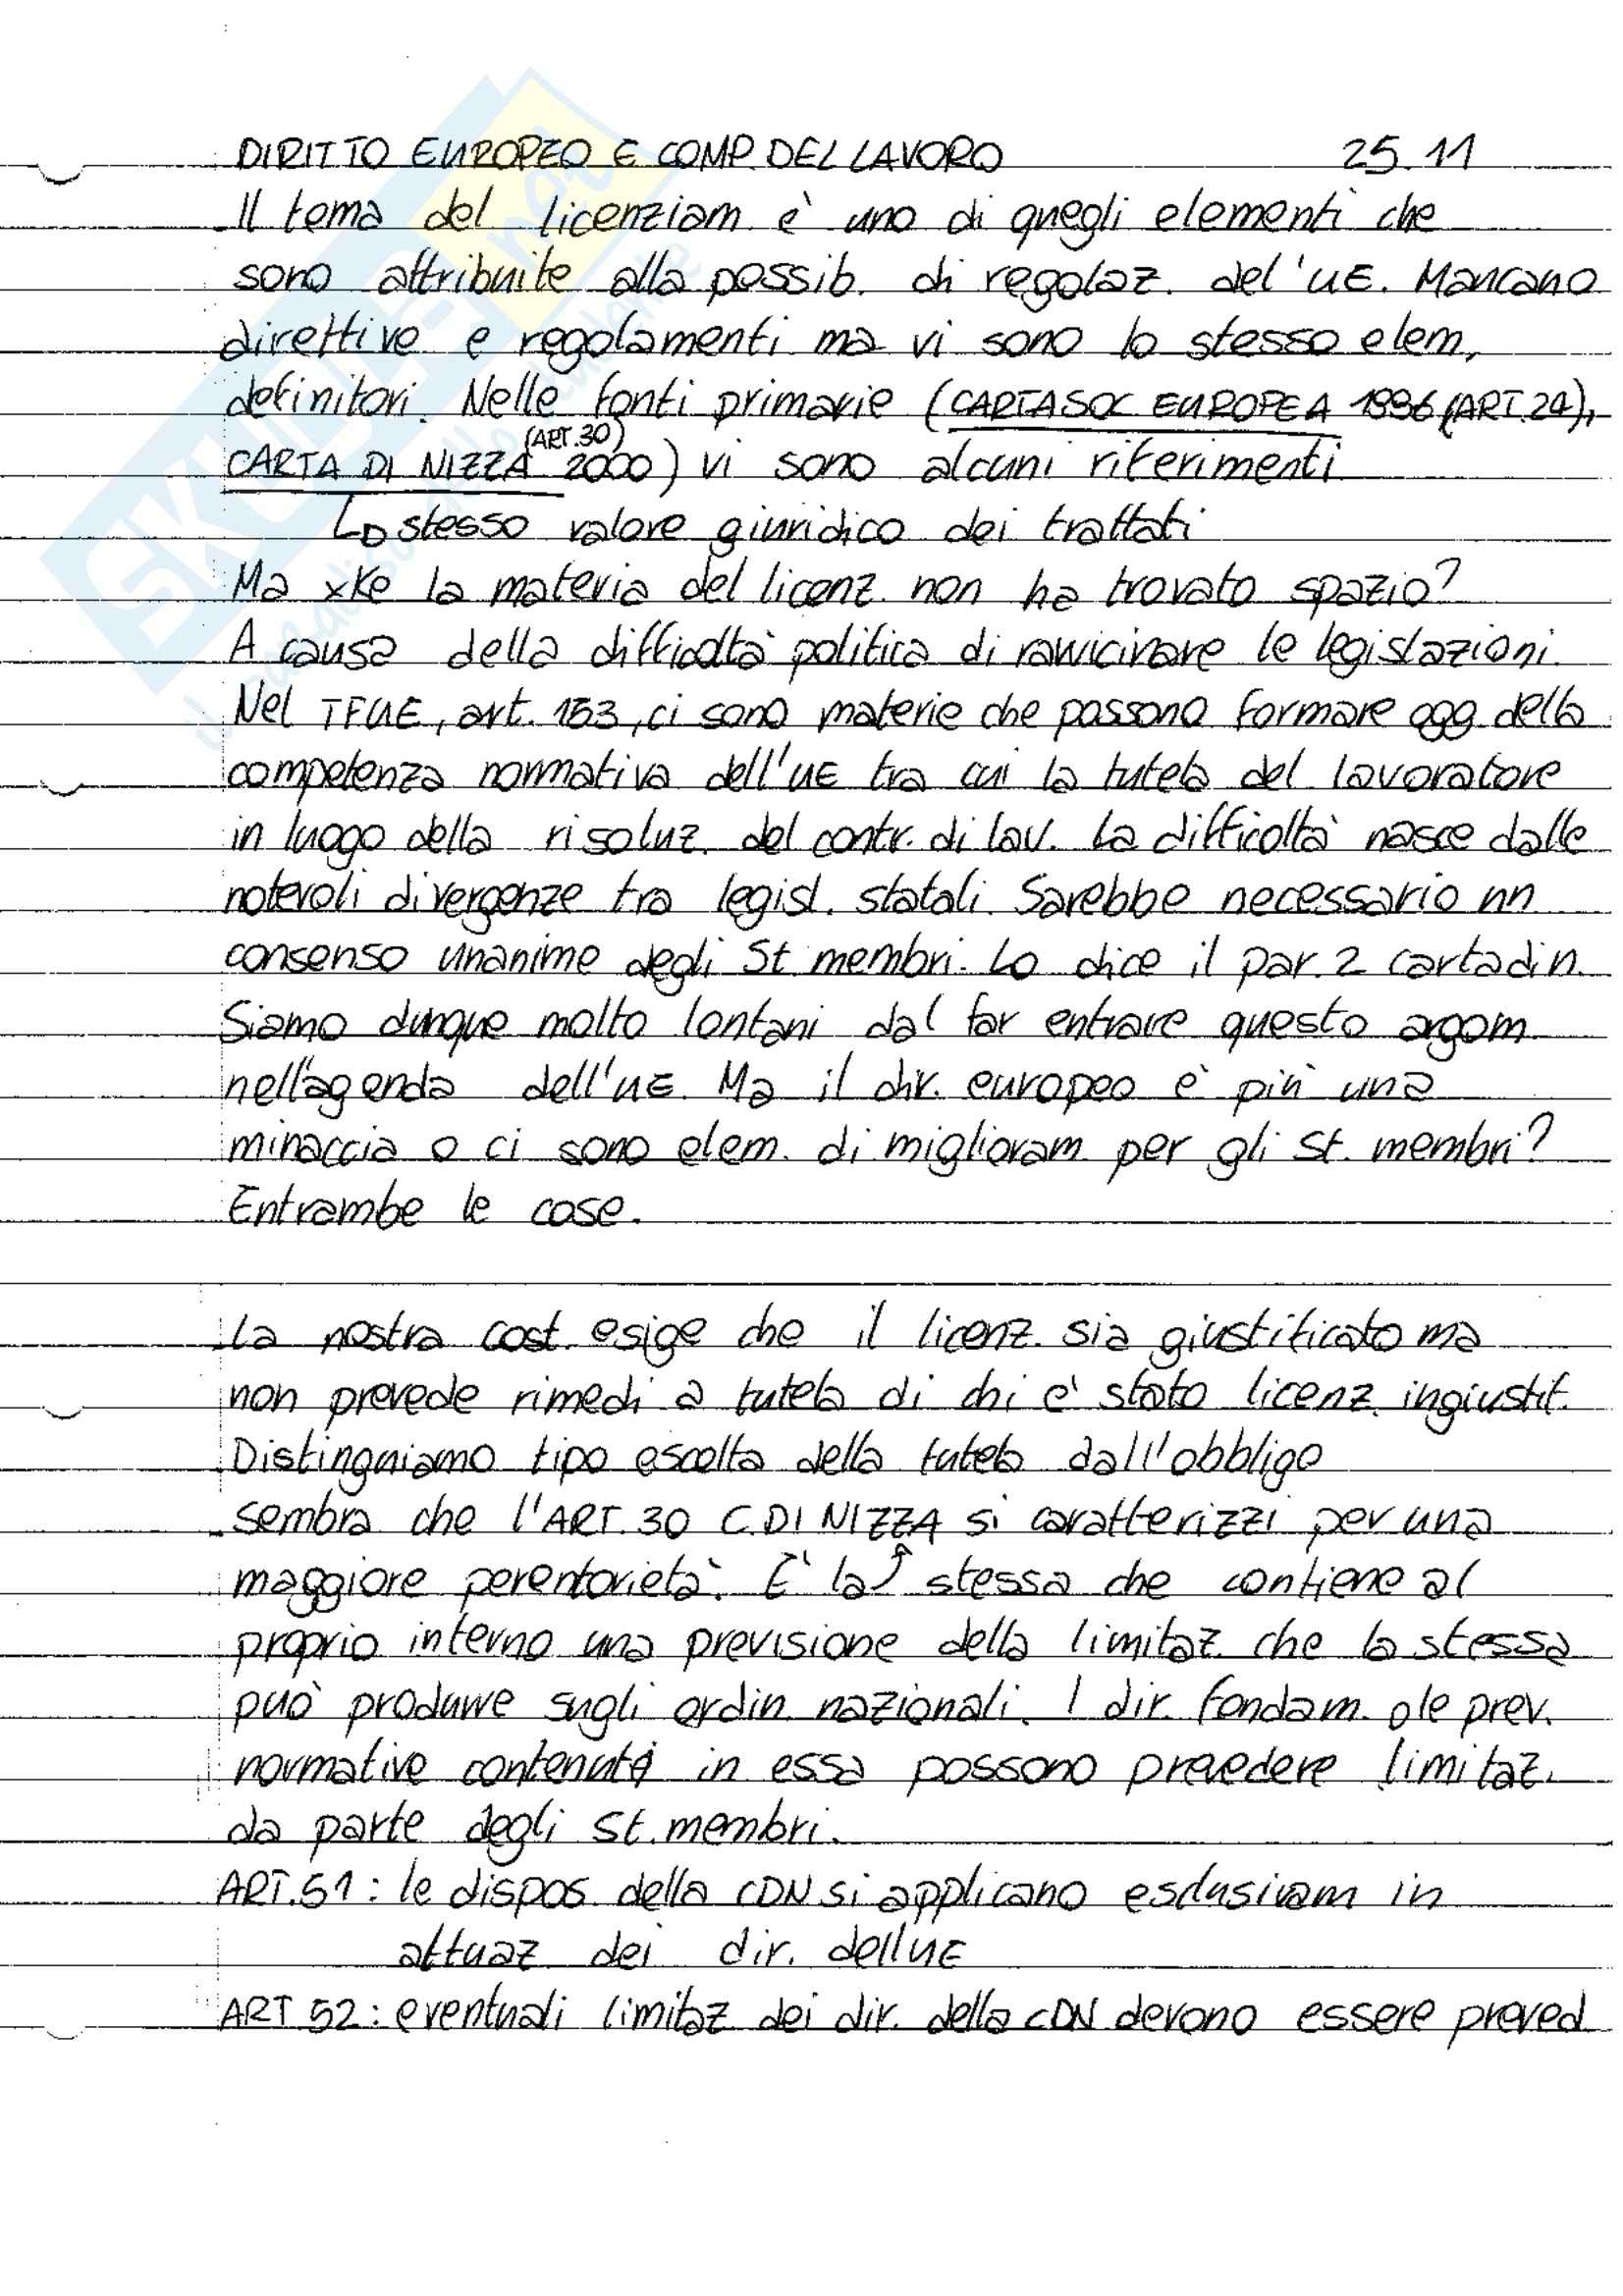 DIRITTO EUROPEO E COMP. DEL LAVORO 25.11
Il tema del licenziam. è uno di quegli elementi che
sono attribuite alla possib. di regolaz. del'UE. Mancano
direttive e regolamenti ma vi sono lo stesso elem.
definitori. Nelle fonti primarie (CARTA SOC EUROPEA 1996 (ART.24),
CARTA DI NIZZA (ART.30) 2000) vi sono alcuni riferimenti
stesso valore giuridico dei trattati
Ma xke la materia del licenz. non ha trovato spazio?
A causa della difficoltà politica di ravvicinare le legislazioni.
Nel TFUE, art. 153, ci sono materie che possono formare ogg. della
competenza normativa dell'UE tra cui la tutela del lavoratore
in luogo della risoluz. del contr. di lav. La difficoltà nasce dalle
notevoli divergenze tra legisl. statali. Sarebbe necessario un
consenso unanime degli St. membri. Lo dice il par. 2 carta di n.
Siamo dunque molto lontani dal far entrare questo argom.
nell'agenda dell'UE. Ma il dir. europeo è più una
minaccia o ci sono elem. di miglioram. per gli St. membri?
Entrambe le cose.
La nostra cost. esige che il licenz. sia giustificato ma
non prevede rimedi a tutela di chi è stato licenz. ingiustif.
Distinguiamo tipo e scelta della tutela dall'obbligo
sembra che l'ART. 30 C. DI NIZZA si caratterizzi per una
maggiore perentorietà. E' la stessa che contiene al
proprio interno una previsione della limitaz. che la stessa
può produrre sugli ordin. nazionali. I dir. fondam. o le prev.
normative contenute in essa possono prevedere limitaz.
da parte degli St. membri.
ART. 51: le dispos. della CDN si applicano esclusivam in
attuaz dei dir. dell UE
ART 52: eventuali limitaz dei dir. della CDN devono essere preved.
SKUOLA.net